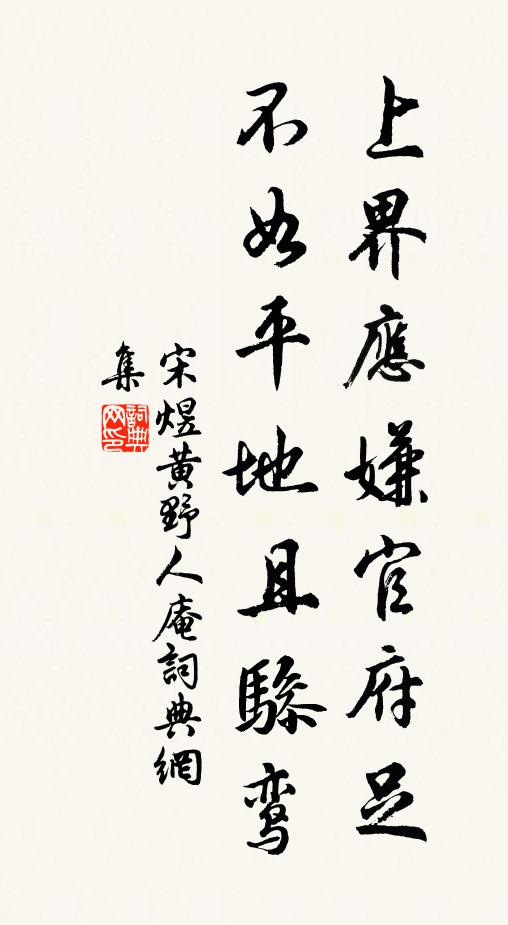 上界應嫌官府足
不如平地且驂鸾
宋煜黄野人庵詞典網
集
詞典网印